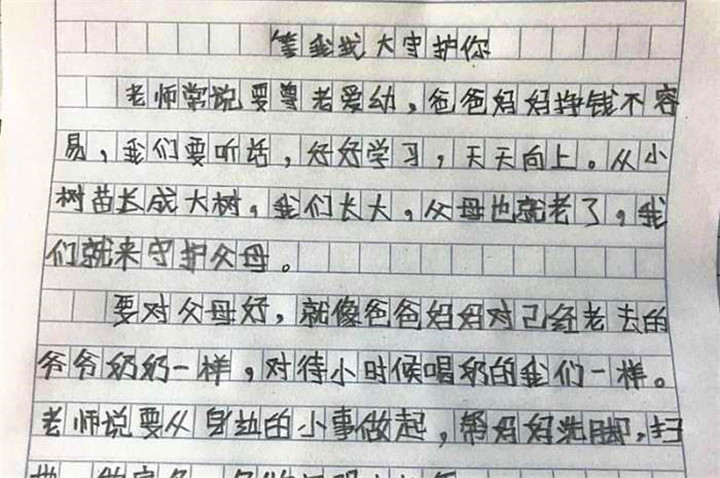 等我长大守护你
老师常说要尊老爱幼，爸爸妈妈挣钱不容
易，我们要听话，好好学习，天天向上。从小
树苗长成大树，我们长大，父母也就老了，我
们就来守护父母。
要对父母好，就像爸爸妈妈对己经老去的
爷爷奶奶一样，对待小时候喝奶的我们一样。
老师说要从身边的小事做起，帮妈妈洗脚，扫